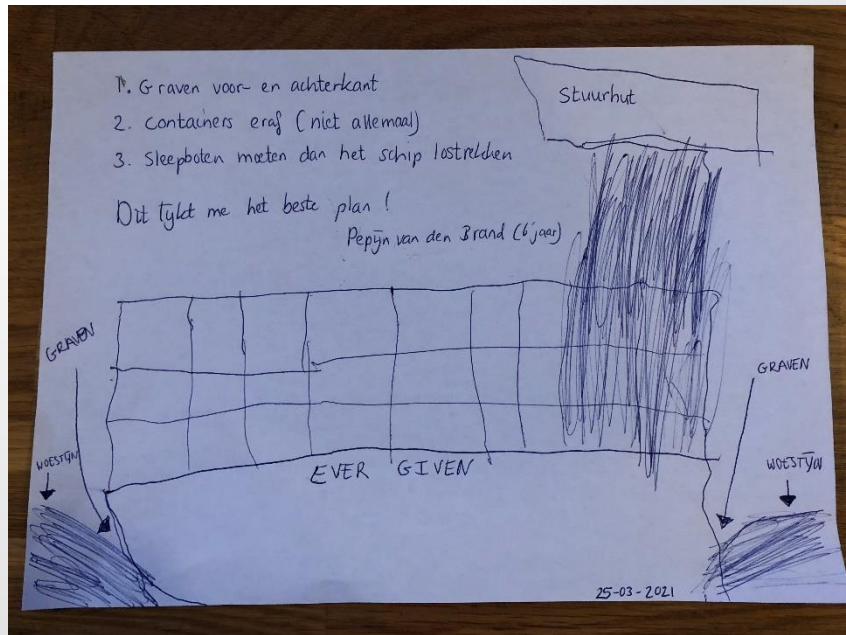 1. Graven voor- en achterkant
2. Containers eraf (niet allemaal)
3. Sleepboten moeten dan het schip lostrekken
Dit lijkt me het beste plan!
Pepijn van den Brand (6 jaar)
Stuurhut
GRAVEN
GRAVEN
WOESTIJN
WOESTIJN
EVER GIVEN
25-03-2021